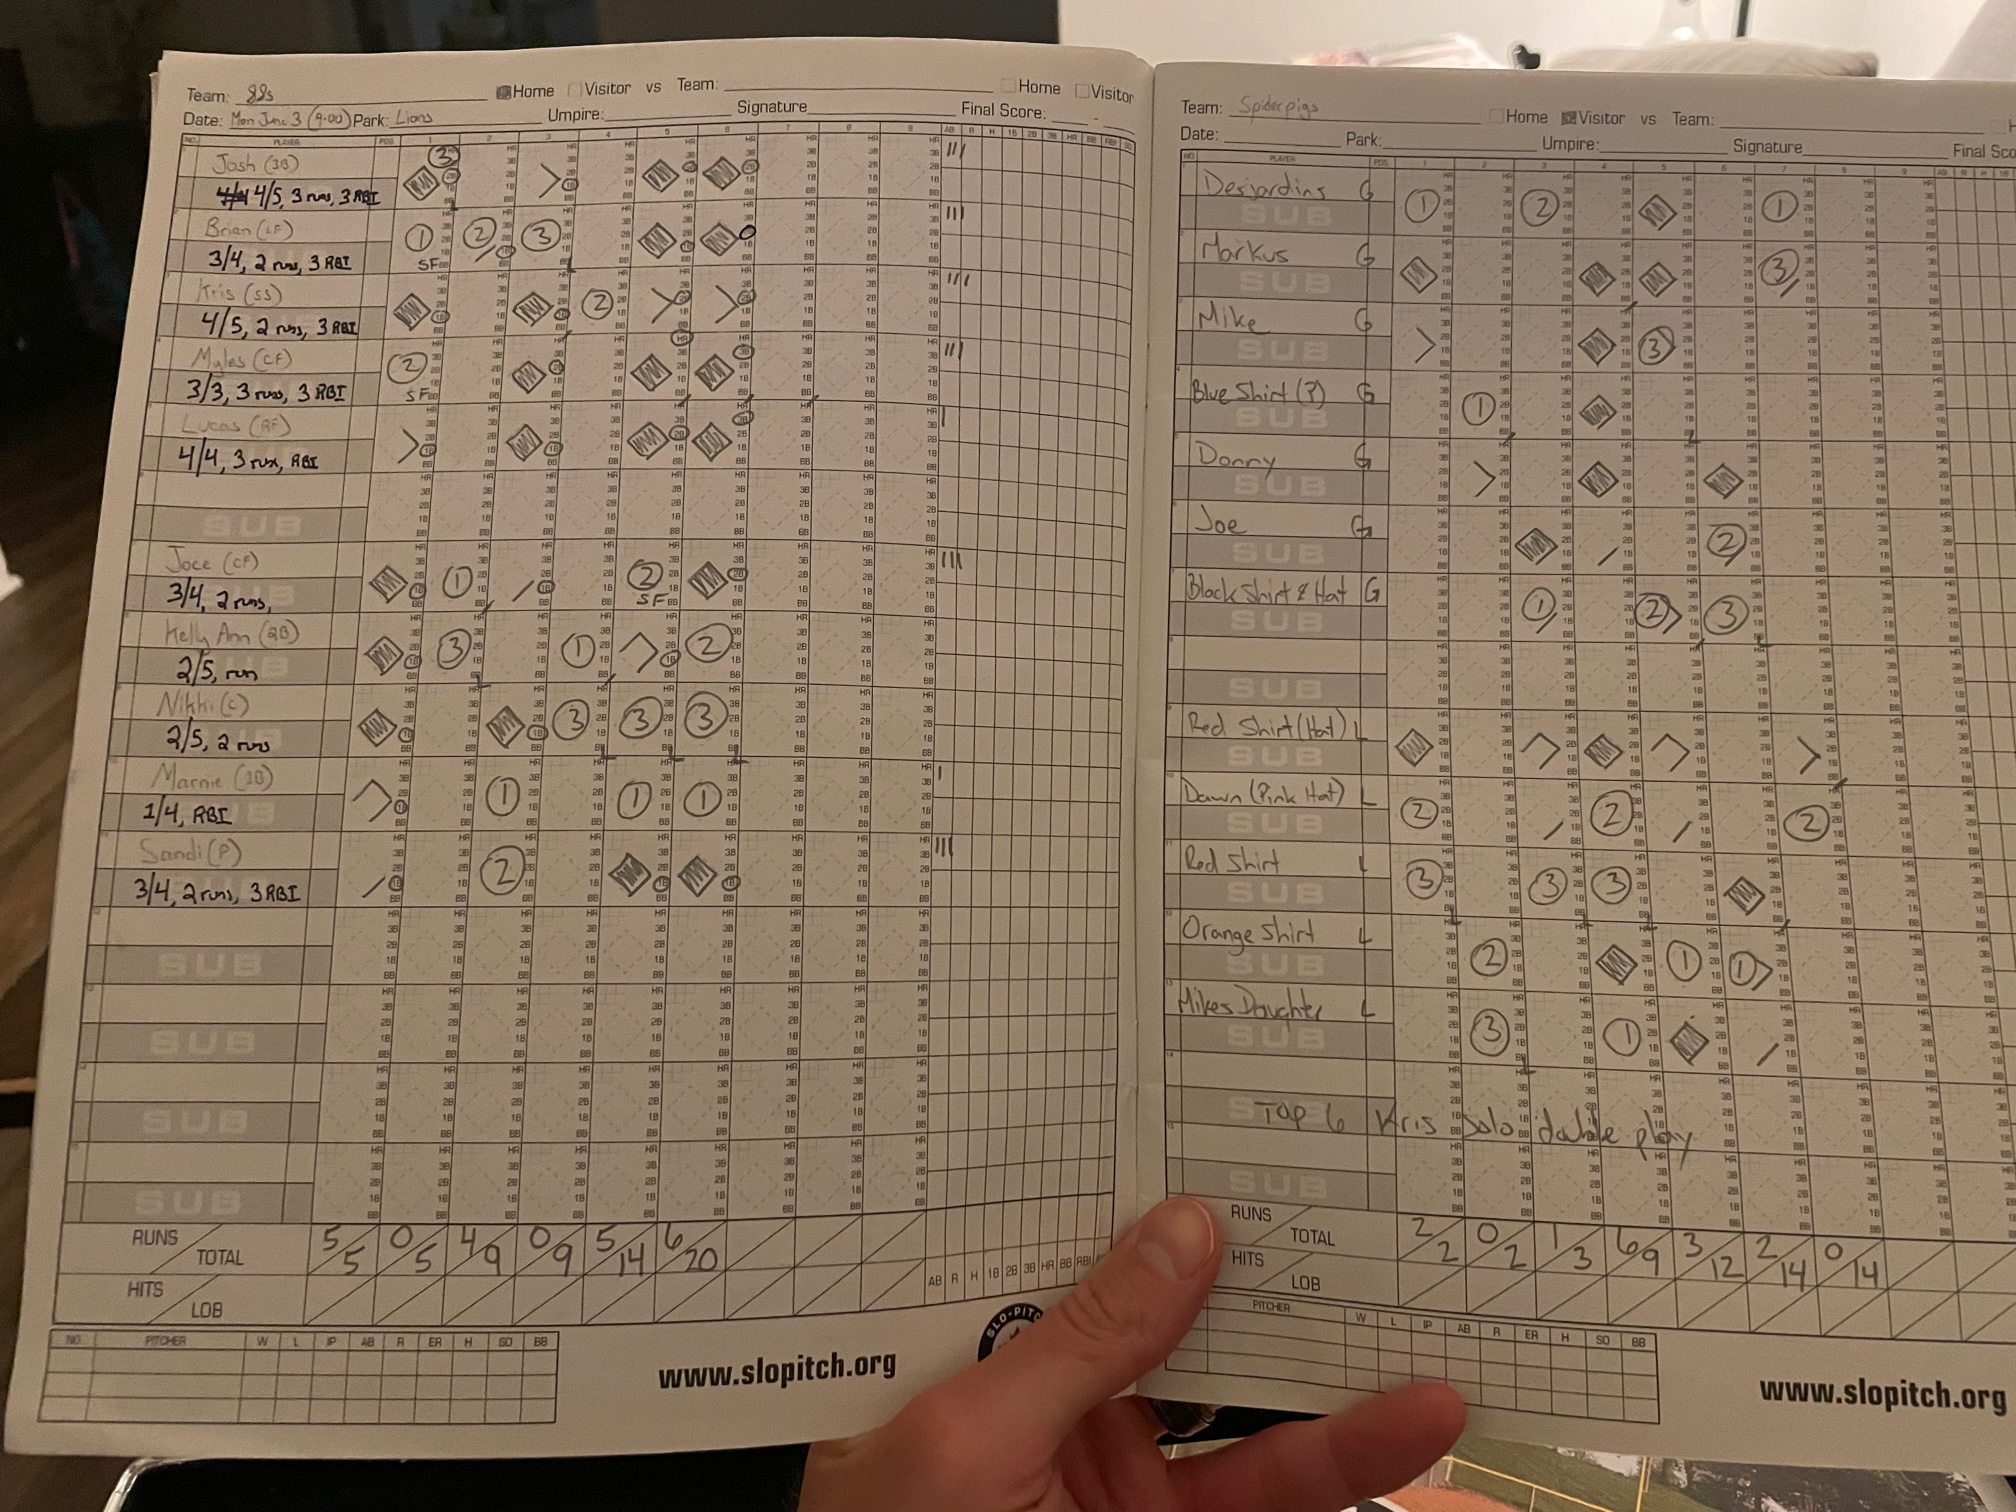 Team: 88s Home Visitor vs Team: Home Visitor
Date: Mon June 3 (9:00) Park: Lions Umpire: Signature Final Score:
NO. PLAYER POS 1 2 3 4 5 6 7 8 9 AB R H 1B 2B 3B HR BB RBI
Josh (3B)
4/5, 3 runs, 3 RBI
Brian (LF)
3/4, 2 runs, 3 RBI
SF
Kris (SS)
4/5, 2 runs, 3 RBI
Myles (CF)
3/3, 3 runs, 3 RBI
SF
Lucas (RF)
4/4, 3 runs, RBI
SUB
Joce (CF)
3/4, 2 runs,
SF
Kelly Ann (2B)
2/5, run
Nikki (C)
2/5, 2 runs
Marnie (1B)
1/4, RBI
Sandi (P)
3/4, 2 runs, 3 RBI
SUB
SUB
SUB
SUB
RUNS 5 0 4 0 5 6
TOTAL 5 5 9 9 14 20
HITS
LOB
AB R H 1B 2B 3B HR BB RBI
NO. PITCHER W L IP AB R ER H SO BB
www.slopitch.org
SLO-PITC
Team: Spiderpigs Home Visitor vs Team:
Date: Park: Umpire: Signature Final Sco
NO PLAYER POS 1 2 3 4 5 6 7 8 9
Desjardins G
SUB
Markus G
SUB
Mike G
SUB
Blue Shirt (?) G
SUB
Donny G
SUB
Joe G
SUB
Black Shirt & Hat G
SUB
SUB
Red Shirt (Hat) L
SUB
Dawn (Pink Hat) L
SUB
Red Shirt L
SUB
Orange Shirt L
SUB
Mikes Daughter L
SUB
TOP 6 Kris solo double play
SUB
RUNS 2 0 1 6 3 2 0
TOTAL 2 2 3 9 12 14 14
HITS
LOB
PITCHER W L IP AB R ER H SO BB
www.slopitch.org